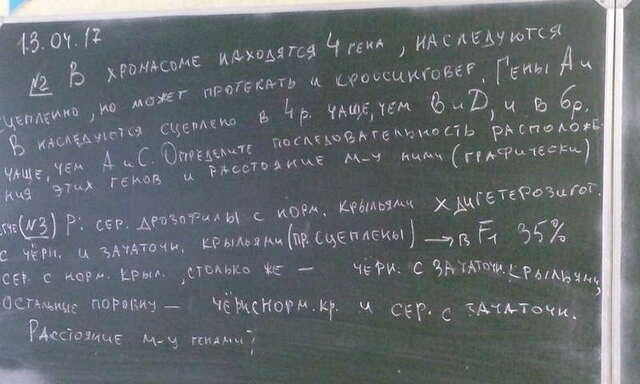 13.04.17
№2 В ХРОМАСОМЕ НАХОДЯТСЯ 4 ГЕНА, НАСЛЕДУЮТСЯ
СЦЕПЛЕННО, НО МОЖЕТ ПРОТЕКАТЬ И КРОССИНГОВЕР. ГЕНЫ А И
В НАСЛЕДУЮТСЯ СЦЕПЛЕНО В 4 Р. ЧАЩЕ, ЧЕМ В И D, И В 6 Р.
ЧАЩЕ, ЧЕМ А И С. ОПРЕДЕЛИТЕ ПОСЛЕДОВАТЕЛЬНОСТЬ РАСПОЛОЖЕ-
НИЯ ЭТИХ ГЕНОВ И РАССТОЯНИЕ М-У НИМИ (ГРАФИЧЕСКИ)
(№3) Р: СЕР. ДРОЗОФИЛЫ С НОРМ. КРЫЛЬЯМИ X ДИГЕТЕРОЗИГОТ.
С ЧЁРН. И ЗАЧАТОЧН. КРЫЛЬЯМИ (ПР. СЦЕПЛЕНЫ) → В F1 35%
СЕР. С НОРМ. КРЫЛ., СТОЛЬКО ЖЕ – ЧЕРН. С ЗАЧАТОЧН. КРЫЛЬЯМИ,
ОСТАЛЬНЫЕ ПОРОВНУ – ЧЁРН С НОРМ. КР. И СЕР. С ЗАЧАТОЧН.
РАССТОЯНИЕ М-У ГЕНАМИ?